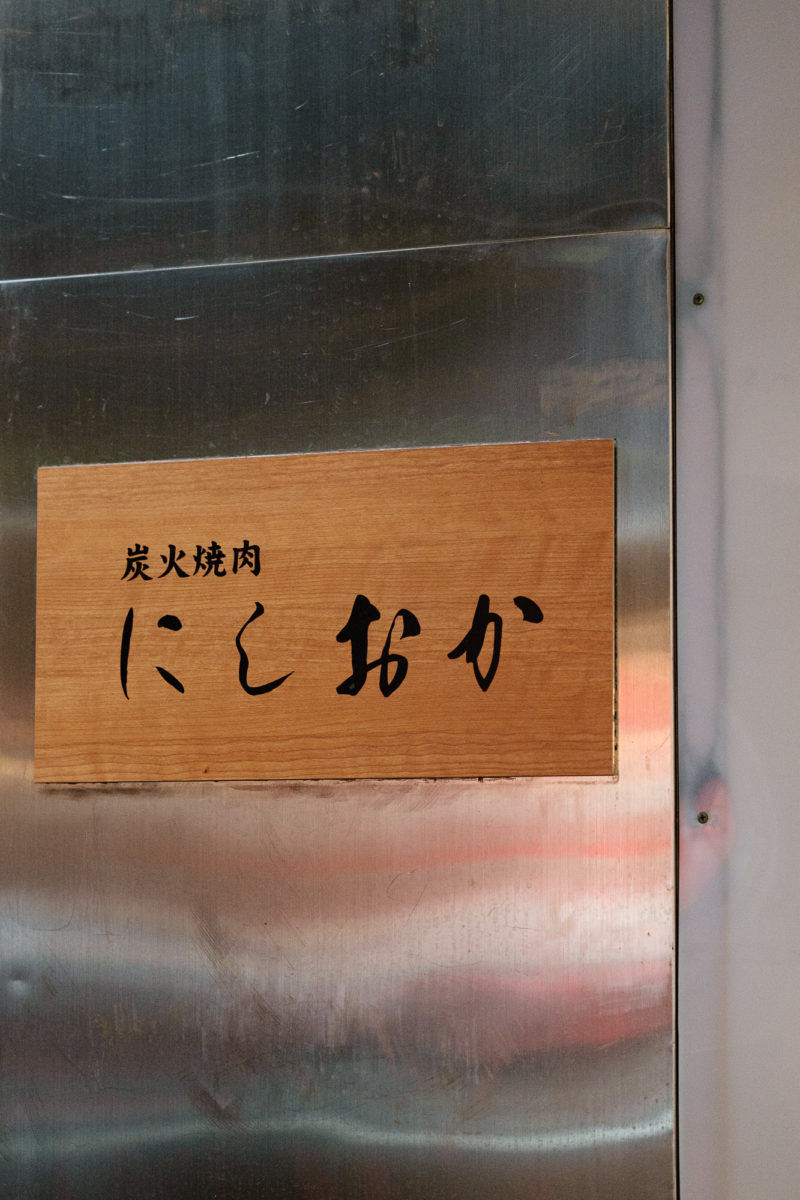 炭火焼肉
にしおか